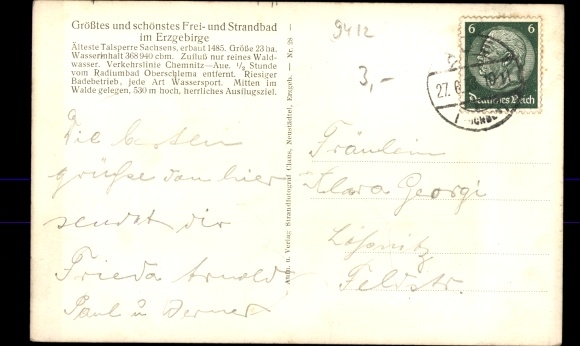 Größtes und schönstes Frei- und Strandbad
im Erzgebirge
Älteste Talsperre Sachsens, erbaut 1485. Größe 23 ha.
Wasserinhalt 368 940 cbm. Zufluß nur reines Wald-
wasser. Verkehrslinie Chemnitz–Aue. ½ Stunde
vom Radiumbad Oberschlema entfernt. Riesiger
Badebetrieb, jede Art Wassersport. Mitten im
Walde gelegen, 530 m hoch, herrliches Ausflugsziel.
Die besten
grüße von hier
sendet dir
Frieda Arnold
Paul u Werner
Aufn. u. Verlag: Strandfotograf Claus, Neustädtel, Erzgeb. — Nr. 28
9412
3,-
6 6
Deutsches Reich
27.6
Fräulein
Klara Georgi
Lößnitz
Feldstr.